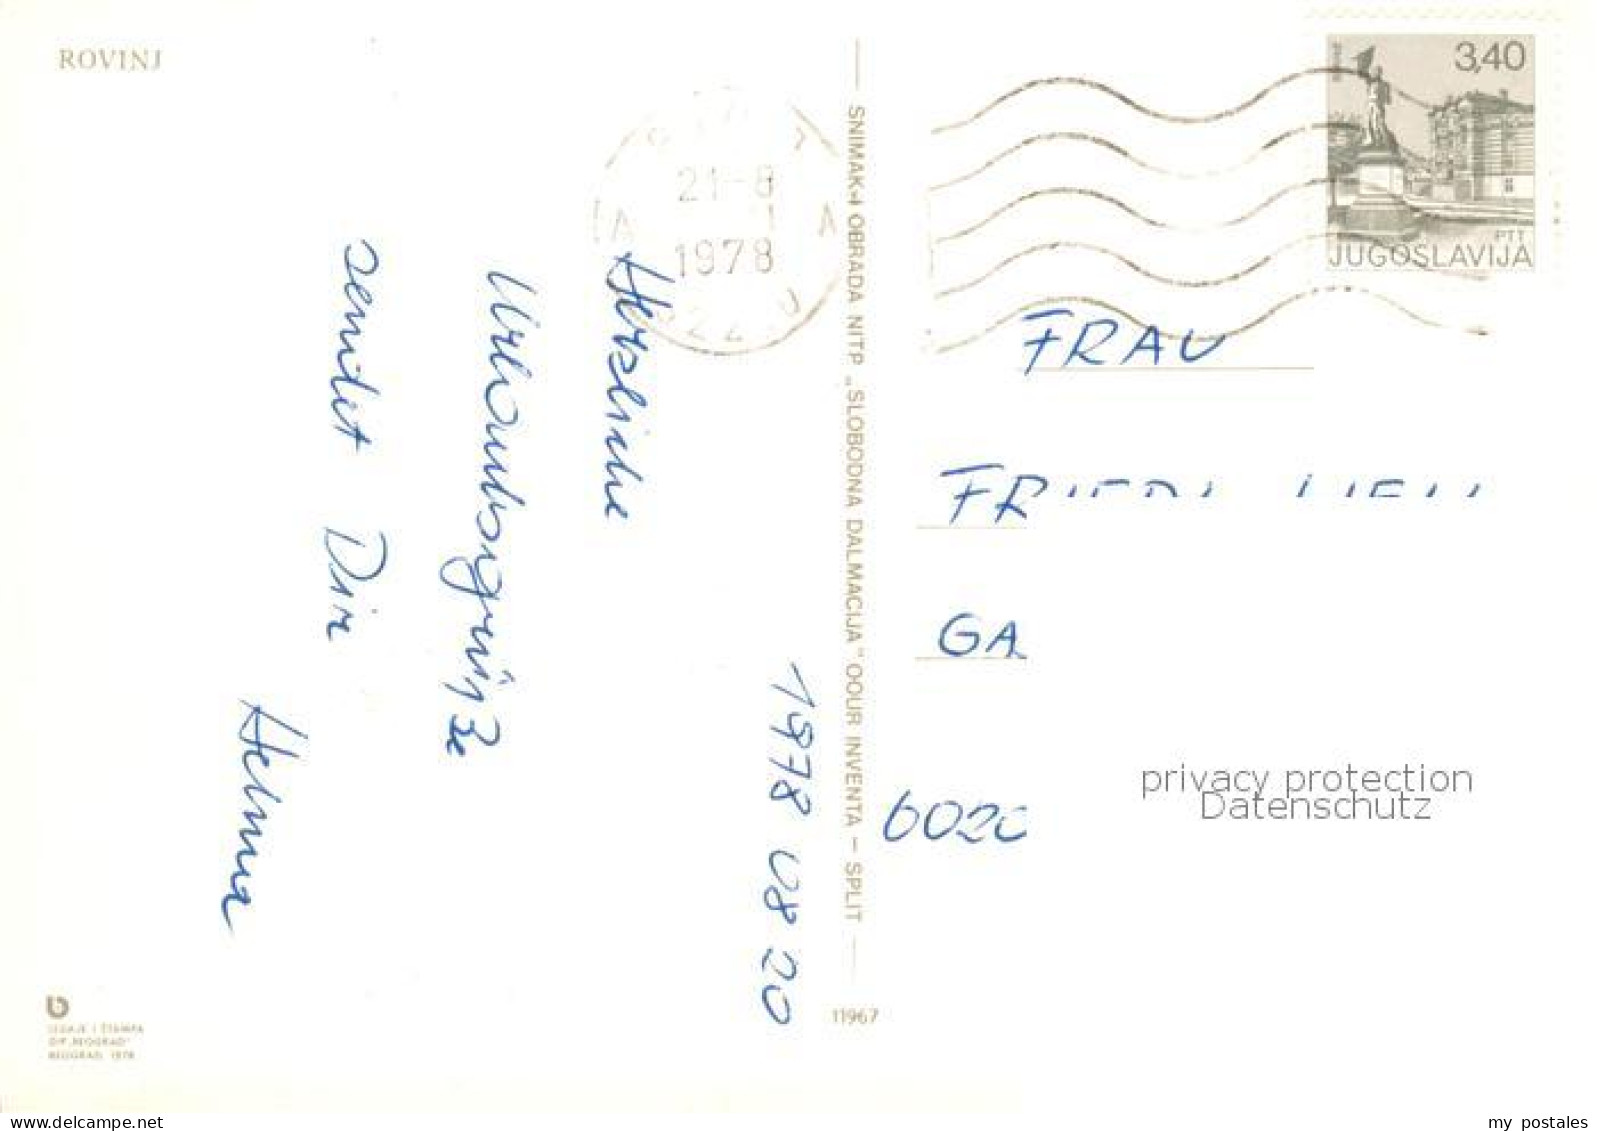 ROVINJ
1978 08 20
Herzliche
Urlaubsgrüße
sendet Dir
Helma
21-8
1978
SNIMAK-I OBRADA NITP „SLOBODNA DALMACIJA" OOUR INVENTA – SPLIT
11967
3,40
PTT
JUGOSLAVIJA
FRAU
GA
6020
privacy protection
Datenschutz
IZDAJE I ŠTAMPA
DIP „BEOGRAD"
BEOGRAD, 1978
www.delcampe.net
my_postales